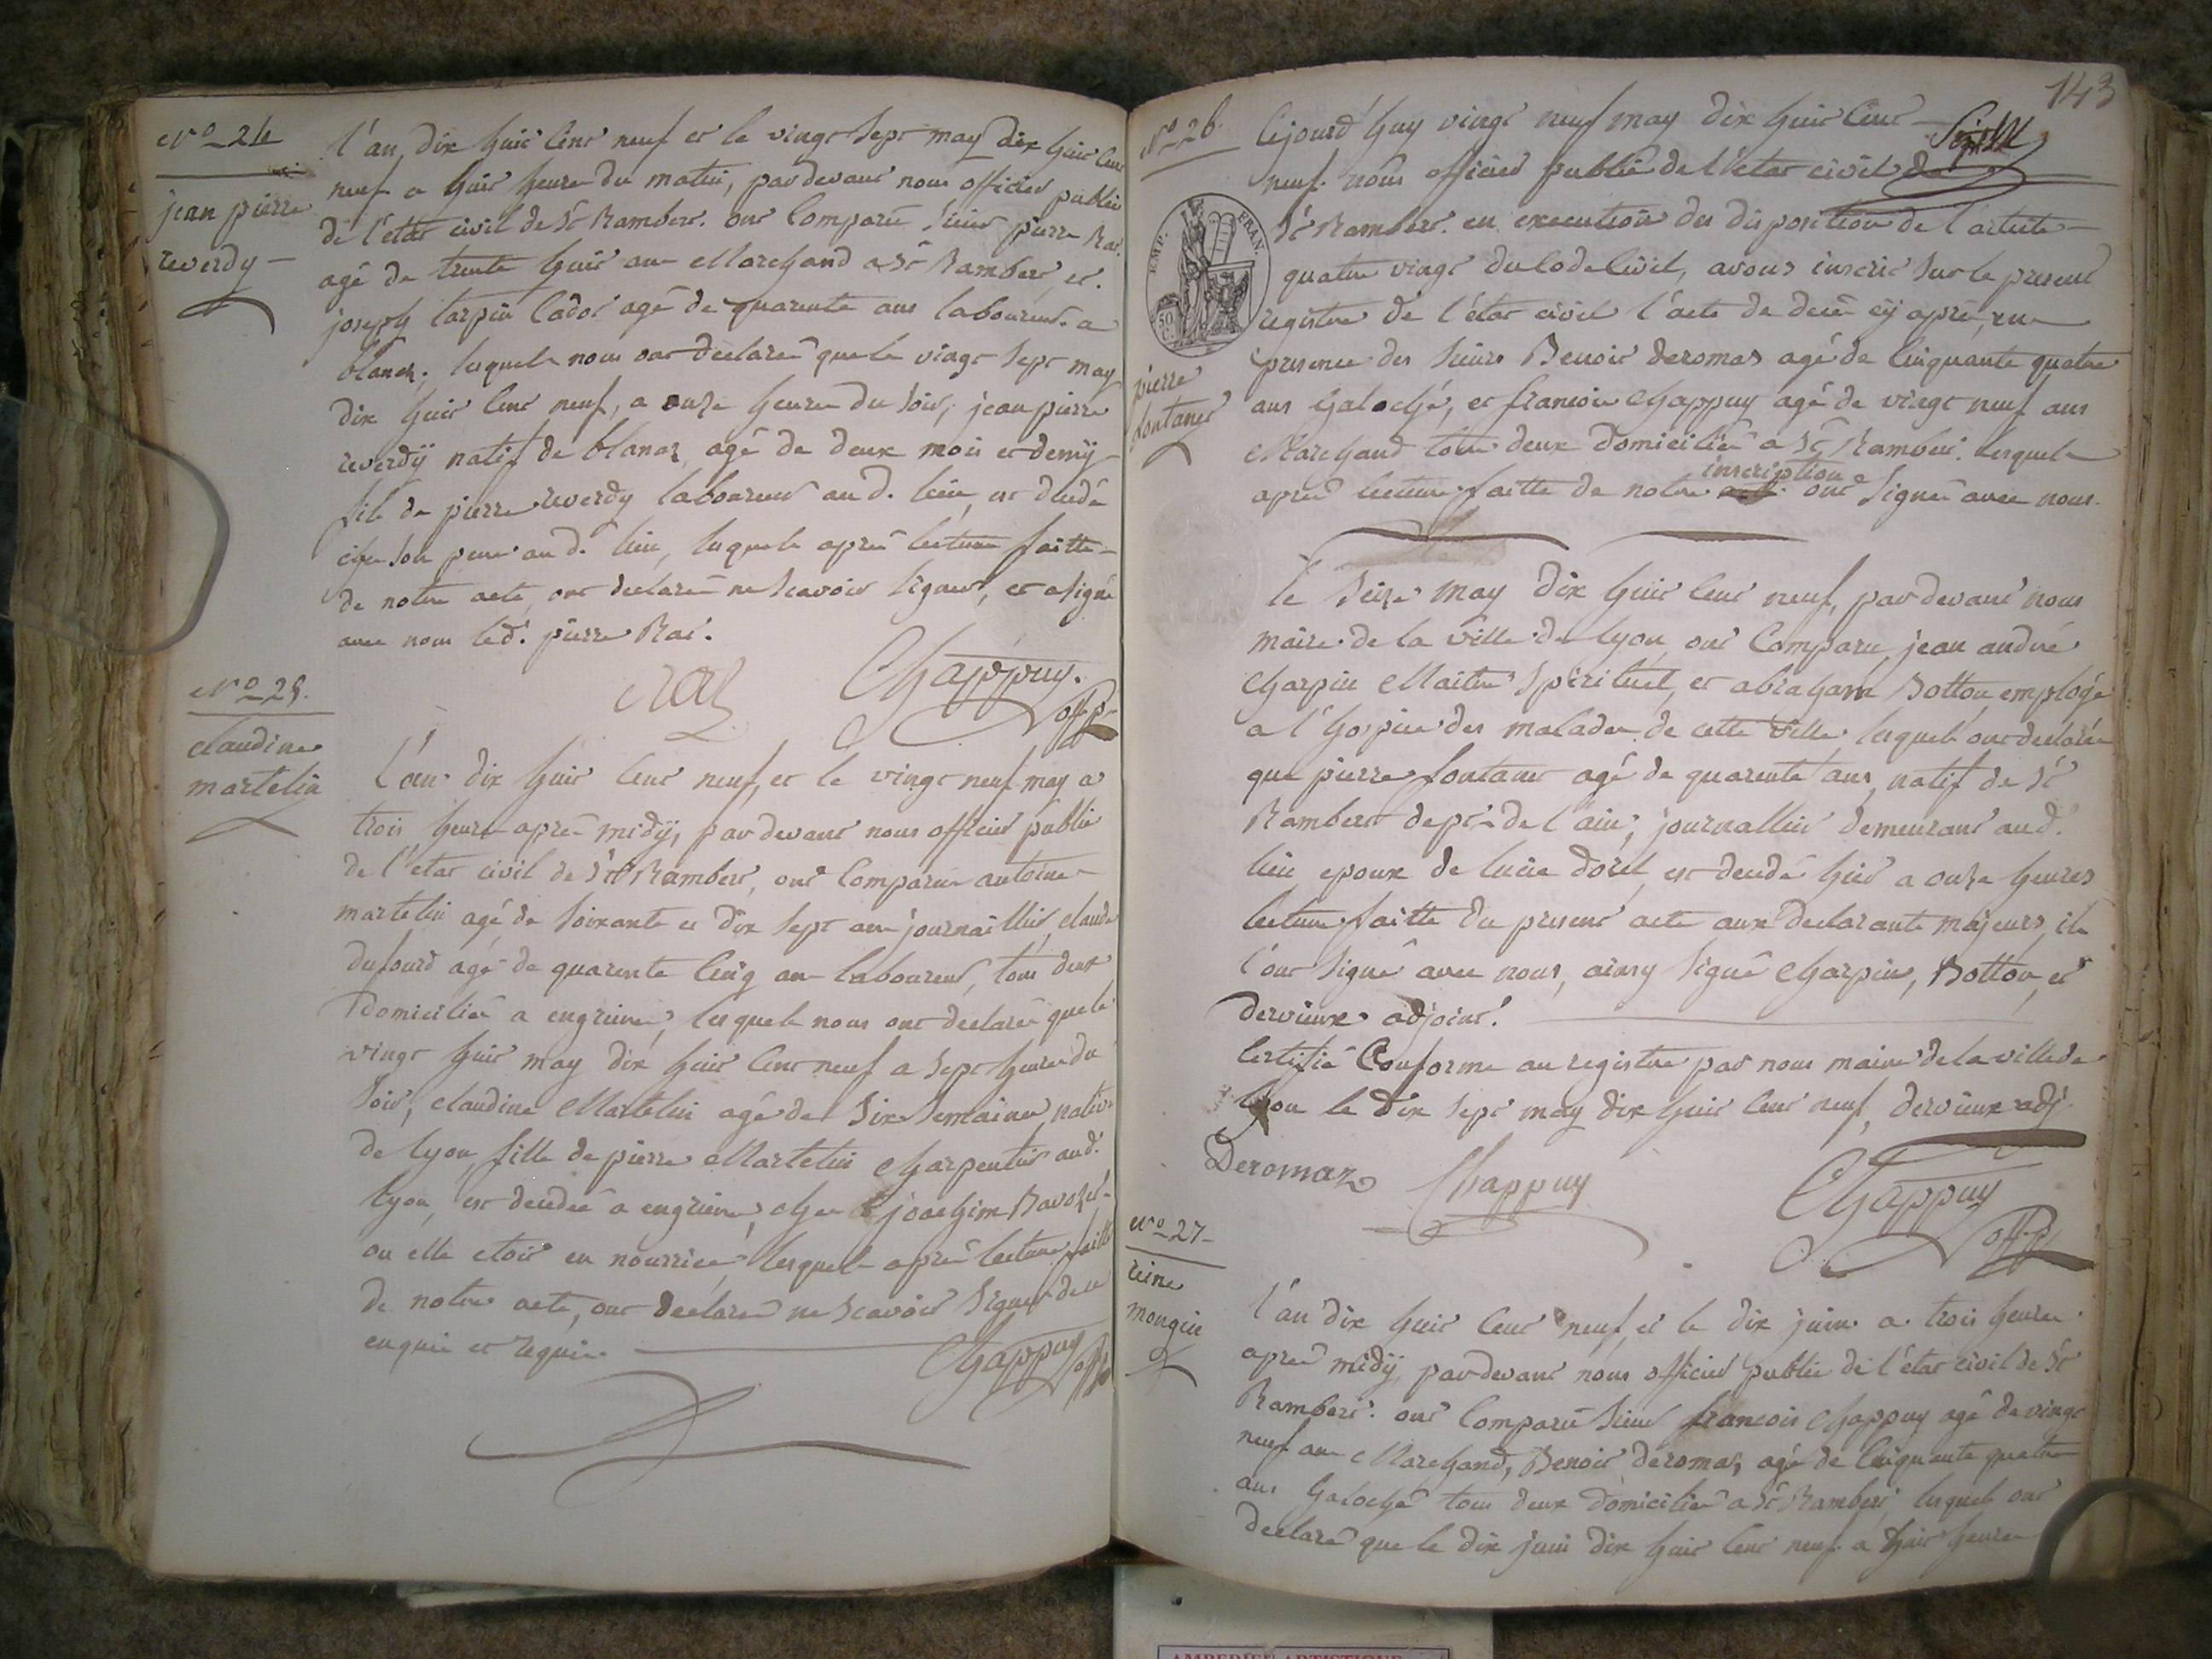 N° 24
jean pierre
reverdy
l'an dix huit cent neuf et le vingt sept may dix huit cent
neuf a huit heure du matin, pardevant nous officier public
de l'etat civil de St Rambert. ont comparu sieur pierre Rat
agé de trente huit ans Marchand a St Rambert et.
joseph tarpin Cador agé de quarente ans laboureur a
blanaz, lesquels nous ont declaré que le vingt sept may
dix huit cent neuf, a onze heure du soir, jean pierre
reverdÿ natif de blanaz, agé de deux mois et demÿ
fils de pierre reverdy laboureur aud. lieu, est decedé
chez son pere aud. lieu, lesquels aprés lecture faitte
de notre acte, ont declaré ne scavoir signer, et a signé
avec nous led. pierre Rat.
Rat Chappuy. off. p.
N° 25.
claudine
martelin
L'an dix huit cent neuf, et le vingt neuf may a
trois heure aprés midÿ, pardevant nous officier public
de l'etat civil de St Rambert, ont comparu antoine
martelin agé de soixante et dix sept ans journaillier, claude
dufourd agé de quarente cinq ans laboureur, tous deux
domicilié a engrieve, lesquels nous ont declaré que le
vingt huit may dix huit cent neuf a sept heure du
soir, claudine Martelin agé de six semaines, native
de lyon, fille de pierre Martelin charpentier aud.
lyon, est decedée a engrieve, chez joachim Ravozet
ou elle etoit en nourrice, lesquels aprés lecture faitte
de notre acte, ont declaré ne scavoir signer de ce
enquis et requis.
Chappuy off. p.
143
N° 26.
pierre
fontanet
Cejourd'huy vingt neuf may dix huit cent
neuf. nous officier public de l'etat civil de
St Rambert. en execution des disposition de l'article
quatre vingt du Code Civil, avons inscrit sur le present
registre de l'état civil l'acte de decés cÿ aprés, en
presence des sieurs Benoit deromas agé de cinquante quatre
ans Galoché, et francois Chappuy agé de vingt neuf ans
Marchand tous deux domicilié a St Rambert. lesquels
inscription
aprés lecture faitte de notre ont signé avec nous.
EMP. FRAN.
50 C
le seize may dix huit cent neuf, pardevant nous
maire de la ville de lyon, ont comparu jean andré
charpin Maitre spirituel, et abraham Botton employé
a l'hospice des malades de cette ville, lesquels ont declaré
que pierre fontanet agé de quarente ans, natif de St
Rambert dept de l'ain, journallier demeurant aud.
lieu epoux de lucie dorel, est decedé hier a onze heures
lecture faitte du present acte aux declarants majeurs, ils
l'ont signé avec nous, ainsy signé charpin, Botton, et
dervieux adjoint.
Certifié Conforme au registre par nous maire de la ville de
lyon le dix sept may dix huit cent neuf, dervieux adj.
Deromaz Chappuy Chappuy off. p.
N° 27
reine
mongin
l'an dix huit cent neuf, et le dix juin a trois heure
aprés midÿ, pardevant nous officier public de l'état civil de St
Rambert. ont comparu sieur francois Chappuy agé de vingt
neuf ans Marchand, Benoit deromas, agé de cinquante quatre
ans Galoché tous deux domicilié a St Rambert, lesquels ont
declaré que le dix juin dix huit cent neuf a huit heure
AMBERIEU ARTISTIQUE